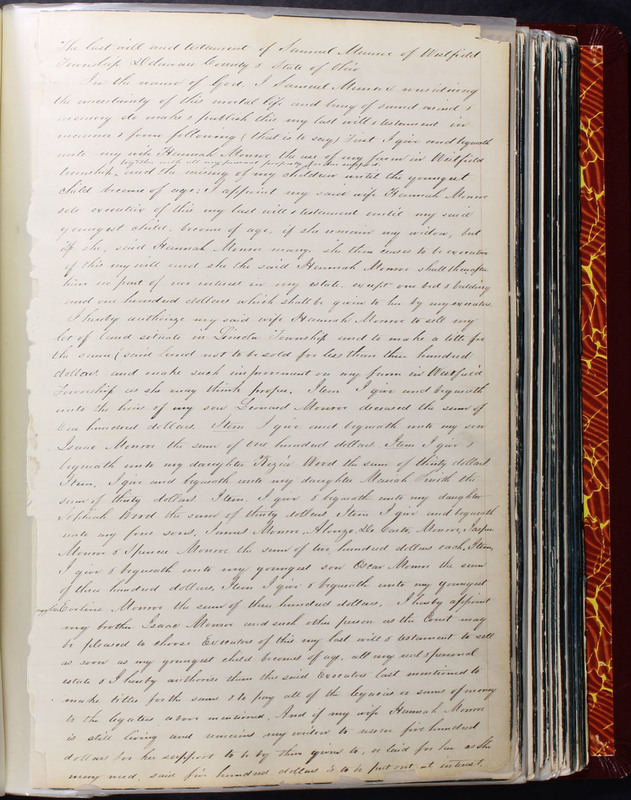 The last will and testament of Samuel Monroe of Westfield
Township Delaware County & State of Ohio
In the name of God, I Samuel Monroe considering
the uncertainty of this mortal life and being of sound mind &
memory do make & publish this my last will & testament in
manner & form following (that is to say) First I give and bequeath
unto my wife Hannah Monroe the use of my farm in Westfield
together with all my personal property for the support
township, and the raising of my children until the youngest
child become of age; I appoint my said wife Hannah Monroe
sole executrix of this my last will & testament until my said
youngest child, become of age, if she remain my widow, but
if she, said Hannah Monroe marry she then ceases to be executrix
of this my will and she the said Hannah Monroe shall thereafter
have no part of nor interest in my estate except one bed & bedding
and one hundred dollars which shall be given to her by my executor
I hereby authorize my said wife Hannah Monroe to sell my
lot of land situate in Lincoln Township and to make a title for
the same (said land not to be sold for less than three hundred
dollars and make such improvement on my farm in Westfield
Township as she may think proper. Item I give and bequeath
unto the heirs of my son Leonard Monroe deceased the sum of
one hundred dollars Item I give and bequeath unto my son
Isaac Monroe the sum of one hundred dollars Item I give &
bequeath unto my daughter Kezia Wood the sum of thirty dollars
Item, I give and bequeath unto my daughter Mariah the
sum of thirty dollars Item, I give & bequeath unto my daughter
Wood the sum of thirty dollars Item I give and bequeath
unto my four sons, James Monroe, Alonzo De Monroe, Jasper
Monroe & Spencer Monroe the sum of two hundred dollars each, Item,
I give & bequeath unto my youngest son Oscar Monroe the sum
of three hundred dollars, Item I give & bequeath unto my youngest
Monroe the sum of three hundred dollars. I hereby appoint
my brother Isaac Monroe and such other person as the Court may
be pleased to choose Executors of this my last will & testament to sell
as soon as my youngest child becomes of age, all my real & personal
estate & I hereby authorize them the said Executors last mentioned to
make titles for the same & to pay all of the legacies or sums of money
to the legatees above mentioned. And if my wife Hannah Monroe
is still living and remains my widow to reserve five hundred
dollars for her support to be by them given to, or laid for her as she
may need. said five hundred dollars is to be put out at interest,